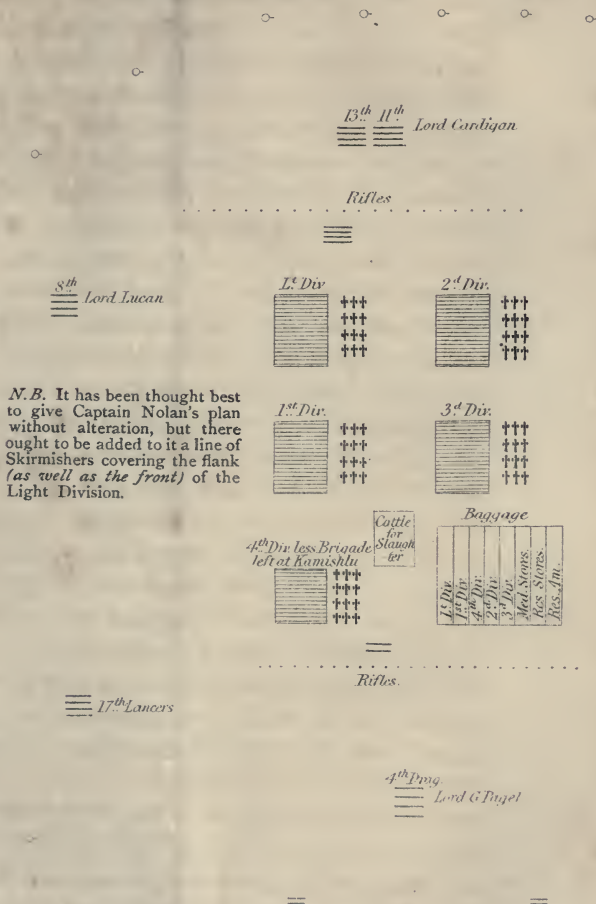 13th 11th
Lord Cardigan
Rifles
8th
Lord Lucan
Lt Div
2d Div.
N.B. It has been thought best
to give Captain Nolan's plan
without alteration, but there
ought to be added to it a line of
Skirmishers covering the flank
(as well as the front) of the
Light Division.
1st Div.
3d Div.
Cattle
for
Slaugh
-ter
Baggage
4th Div. less Brigade
left at Kamishlu
Lt Div.
1st Div
4th Div.
2d Div
3d Div.
Med. Stores.
Res. Stores.
Res. Am.
Rifles.
17th Lancers
4th Drag.
Lord G Paget